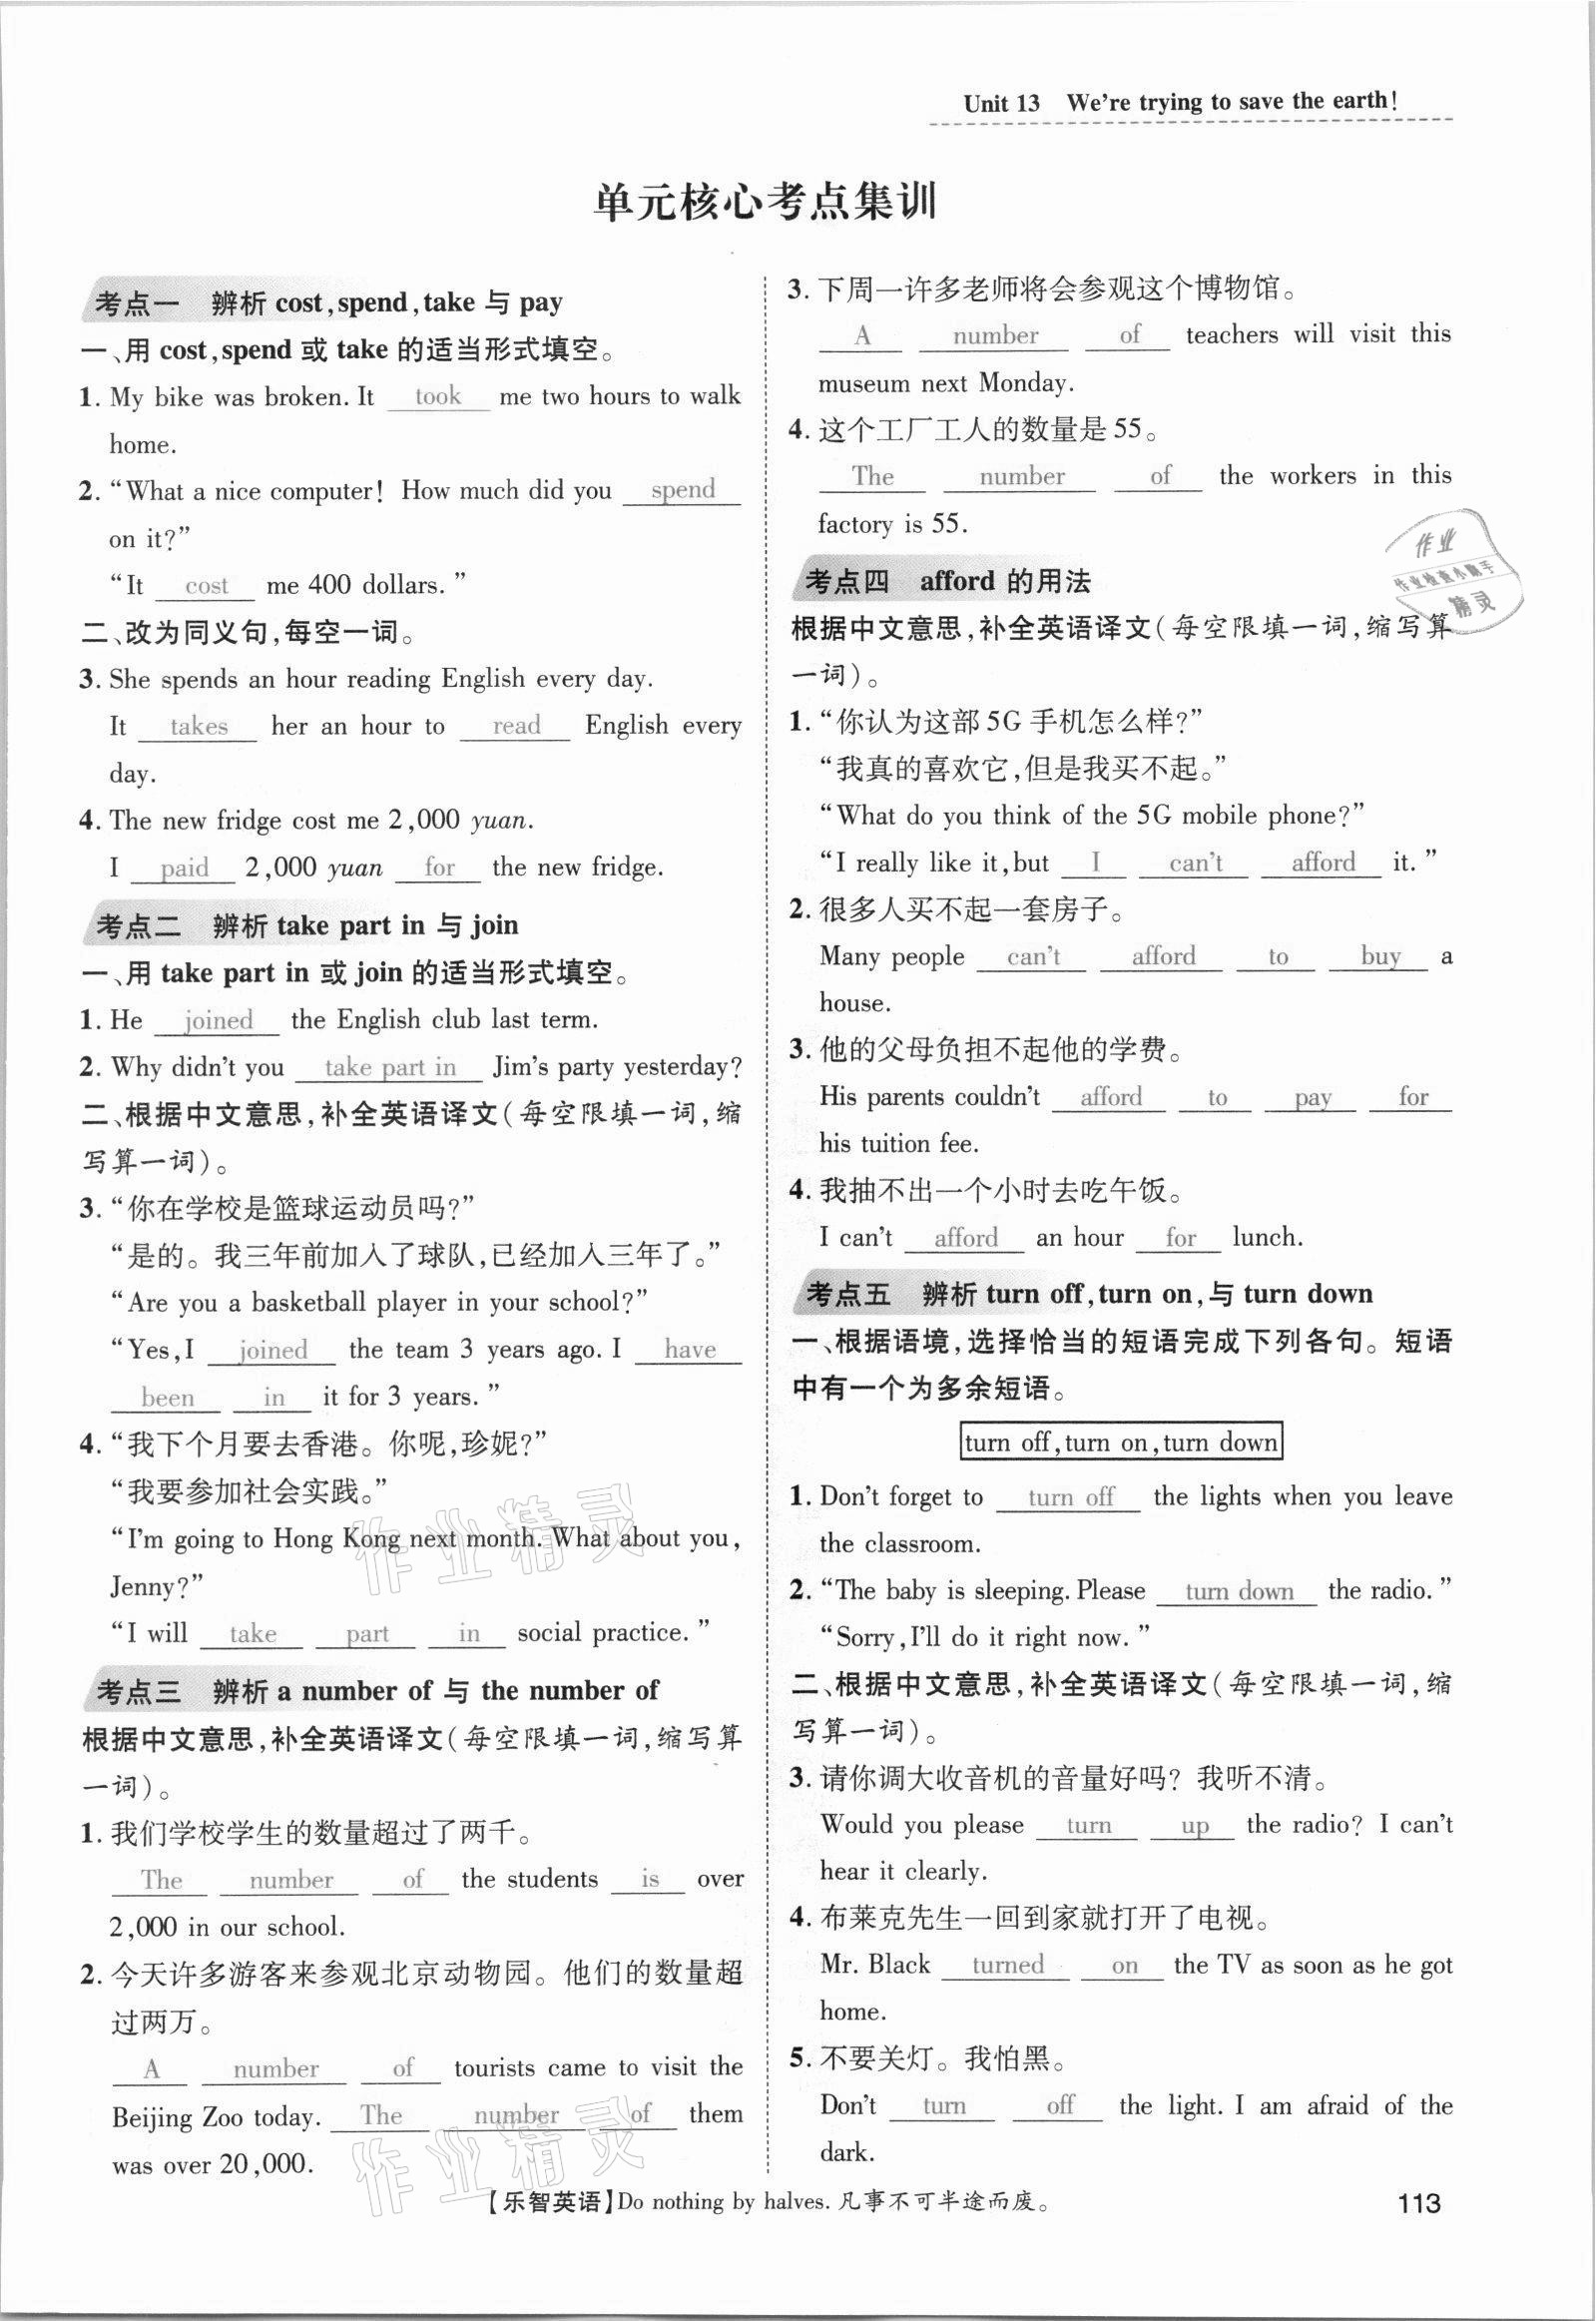 Unit 13 We're trying to save the earth!
单元核心考点集训
考点一 辨析 cost, spend, take 与 pay
一、用 cost, spend 或 take 的适当形式填空。
1. My bike was broken. It took me two hours to walk
home.
2. “What a nice computer! How much did you spend
on it?”
“It cost me 400 dollars.”
二、改为同义句,每空一词。
3. She spends an hour reading English every day.
It takes her an hour to read English every
day.
4. The new fridge cost me 2,000 yuan.
I paid 2,000 yuan for the new fridge.
考点二 辨析 take part in 与 join
一、用 take part in 或 join 的适当形式填空。
1. He joined the English club last term.
2. Why didn't you take part in Jim's party yesterday?
二、根据中文意思,补全英语译文(每空限填一词,缩
写算一词)。
3. “你在学校是篮球运动员吗?”
“是的。我三年前加入了球队,已经加入三年了。”
“Are you a basketball player in your school?”
“Yes, I joined the team 3 years ago. I have
been in it for 3 years.”
4. “我下个月要去香港。你呢,珍妮?”
“我要参加社会实践。”
“I'm going to Hong Kong next month. What about you,
Jenny?”
“I will take part in social practice.”
考点三 辨析 a number of 与 the number of
根据中文意思,补全英语译文(每空限填一词,缩写算
一词)。
1. 我们学校学生的数量超过了两千。
The number of the students is over
2,000 in our school.
2. 今天许多游客来参观北京动物园。他们的数量超
过两万。
A number of tourists came to visit the
Beijing Zoo today. The number of them
was over 20,000.
3. 下周一许多老师将会参观这个博物馆。
A number of teachers will visit this
museum next Monday.
4. 这个工厂工人的数量是 55。
The number of the workers in this
factory is 55.
考点四 afford 的用法
根据中文意思,补全英语译文(每空限填一词,缩写算
一词)。
1. “你认为这部 5G 手机怎么样?”
“我真的喜欢它,但是我买不起。”
“What do you think of the 5G mobile phone?”
“I really like it, but I can't afford it.”
2. 很多人买不起一套房子。
Many people can't afford to buy a
house.
3. 他的父母负担不起他的学费。
His parents couldn't afford to pay for
his tuition fee.
4. 我抽不出一个小时去吃午饭。
I can't afford an hour for lunch.
考点五 辨析 turn off, turn on, 与 turn down
一、根据语境,选择恰当的短语完成下列各句。短语
中有一个为多余短语。
turn off, turn on, turn down
1. Don't forget to turn off the lights when you leave
the classroom.
2. “The baby is sleeping. Please turn down the radio.”
“Sorry, I'll do it right now.”
二、根据中文意思,补全英语译文(每空限填一词,缩
写算一词)。
3. 请你调大收音机的音量好吗? 我听不清。
Would you please turn up the radio? I can't
hear it clearly.
4. 布莱克先生一回到家就打开了电视。
Mr. Black turned on the TV as soon as he got
home.
5. 不要关灯。我怕黑。
Don't turn off the light. I am afraid of the
dark.
作业
作业检查小助手
精灵
作业精灵
作业精灵
【乐智英语】Do nothing by halves. 凡事不可半途而废。
113